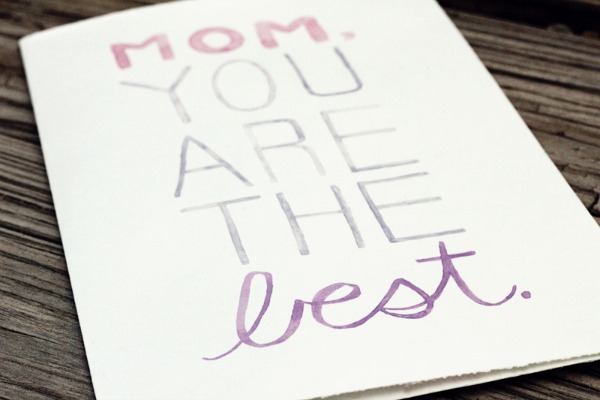 MOM,
YOU
ARE
THE
best.